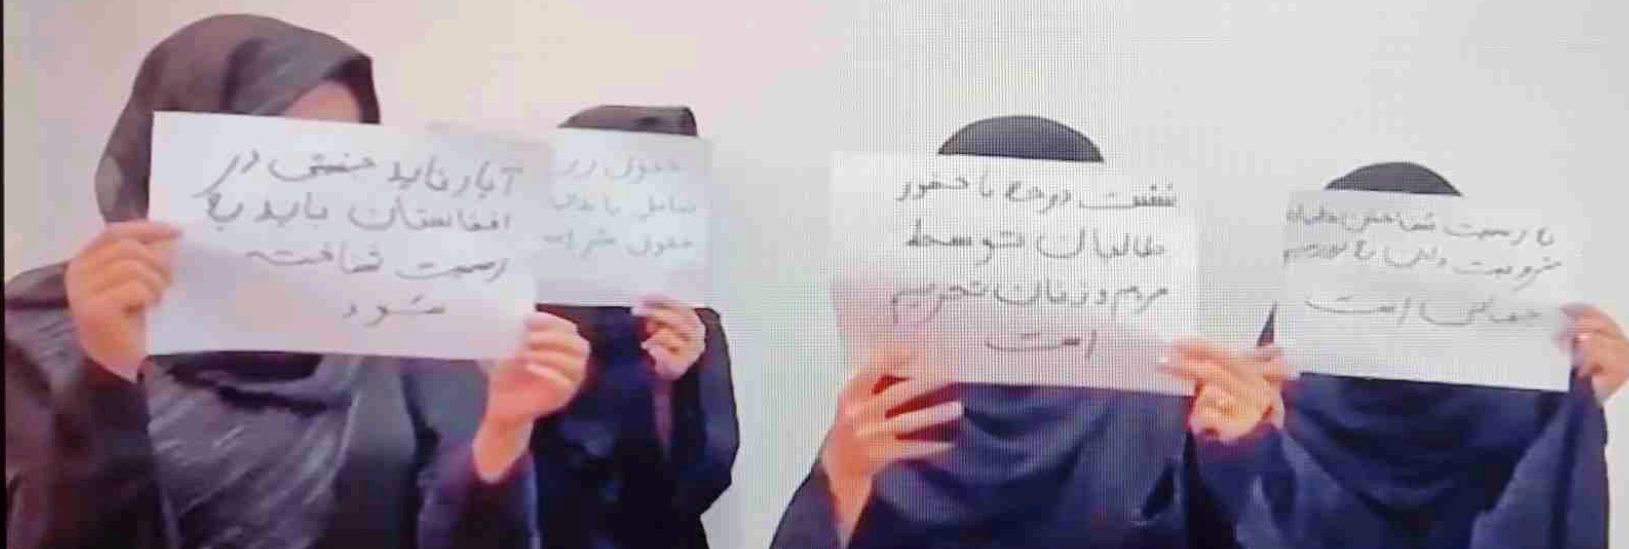 آپارتاید جنسیتی در
افغانستان باید به
رسمیت شناخته
شود
حقوق زن
تعامل با طالبا
حقوق بشر است
نشست دوحه با حضور
طالبان توسط
مردم و زنان تحریم
است
به رسمیت شناختن طالبان
مشروعیت دادن به تروریسم
جهانی است